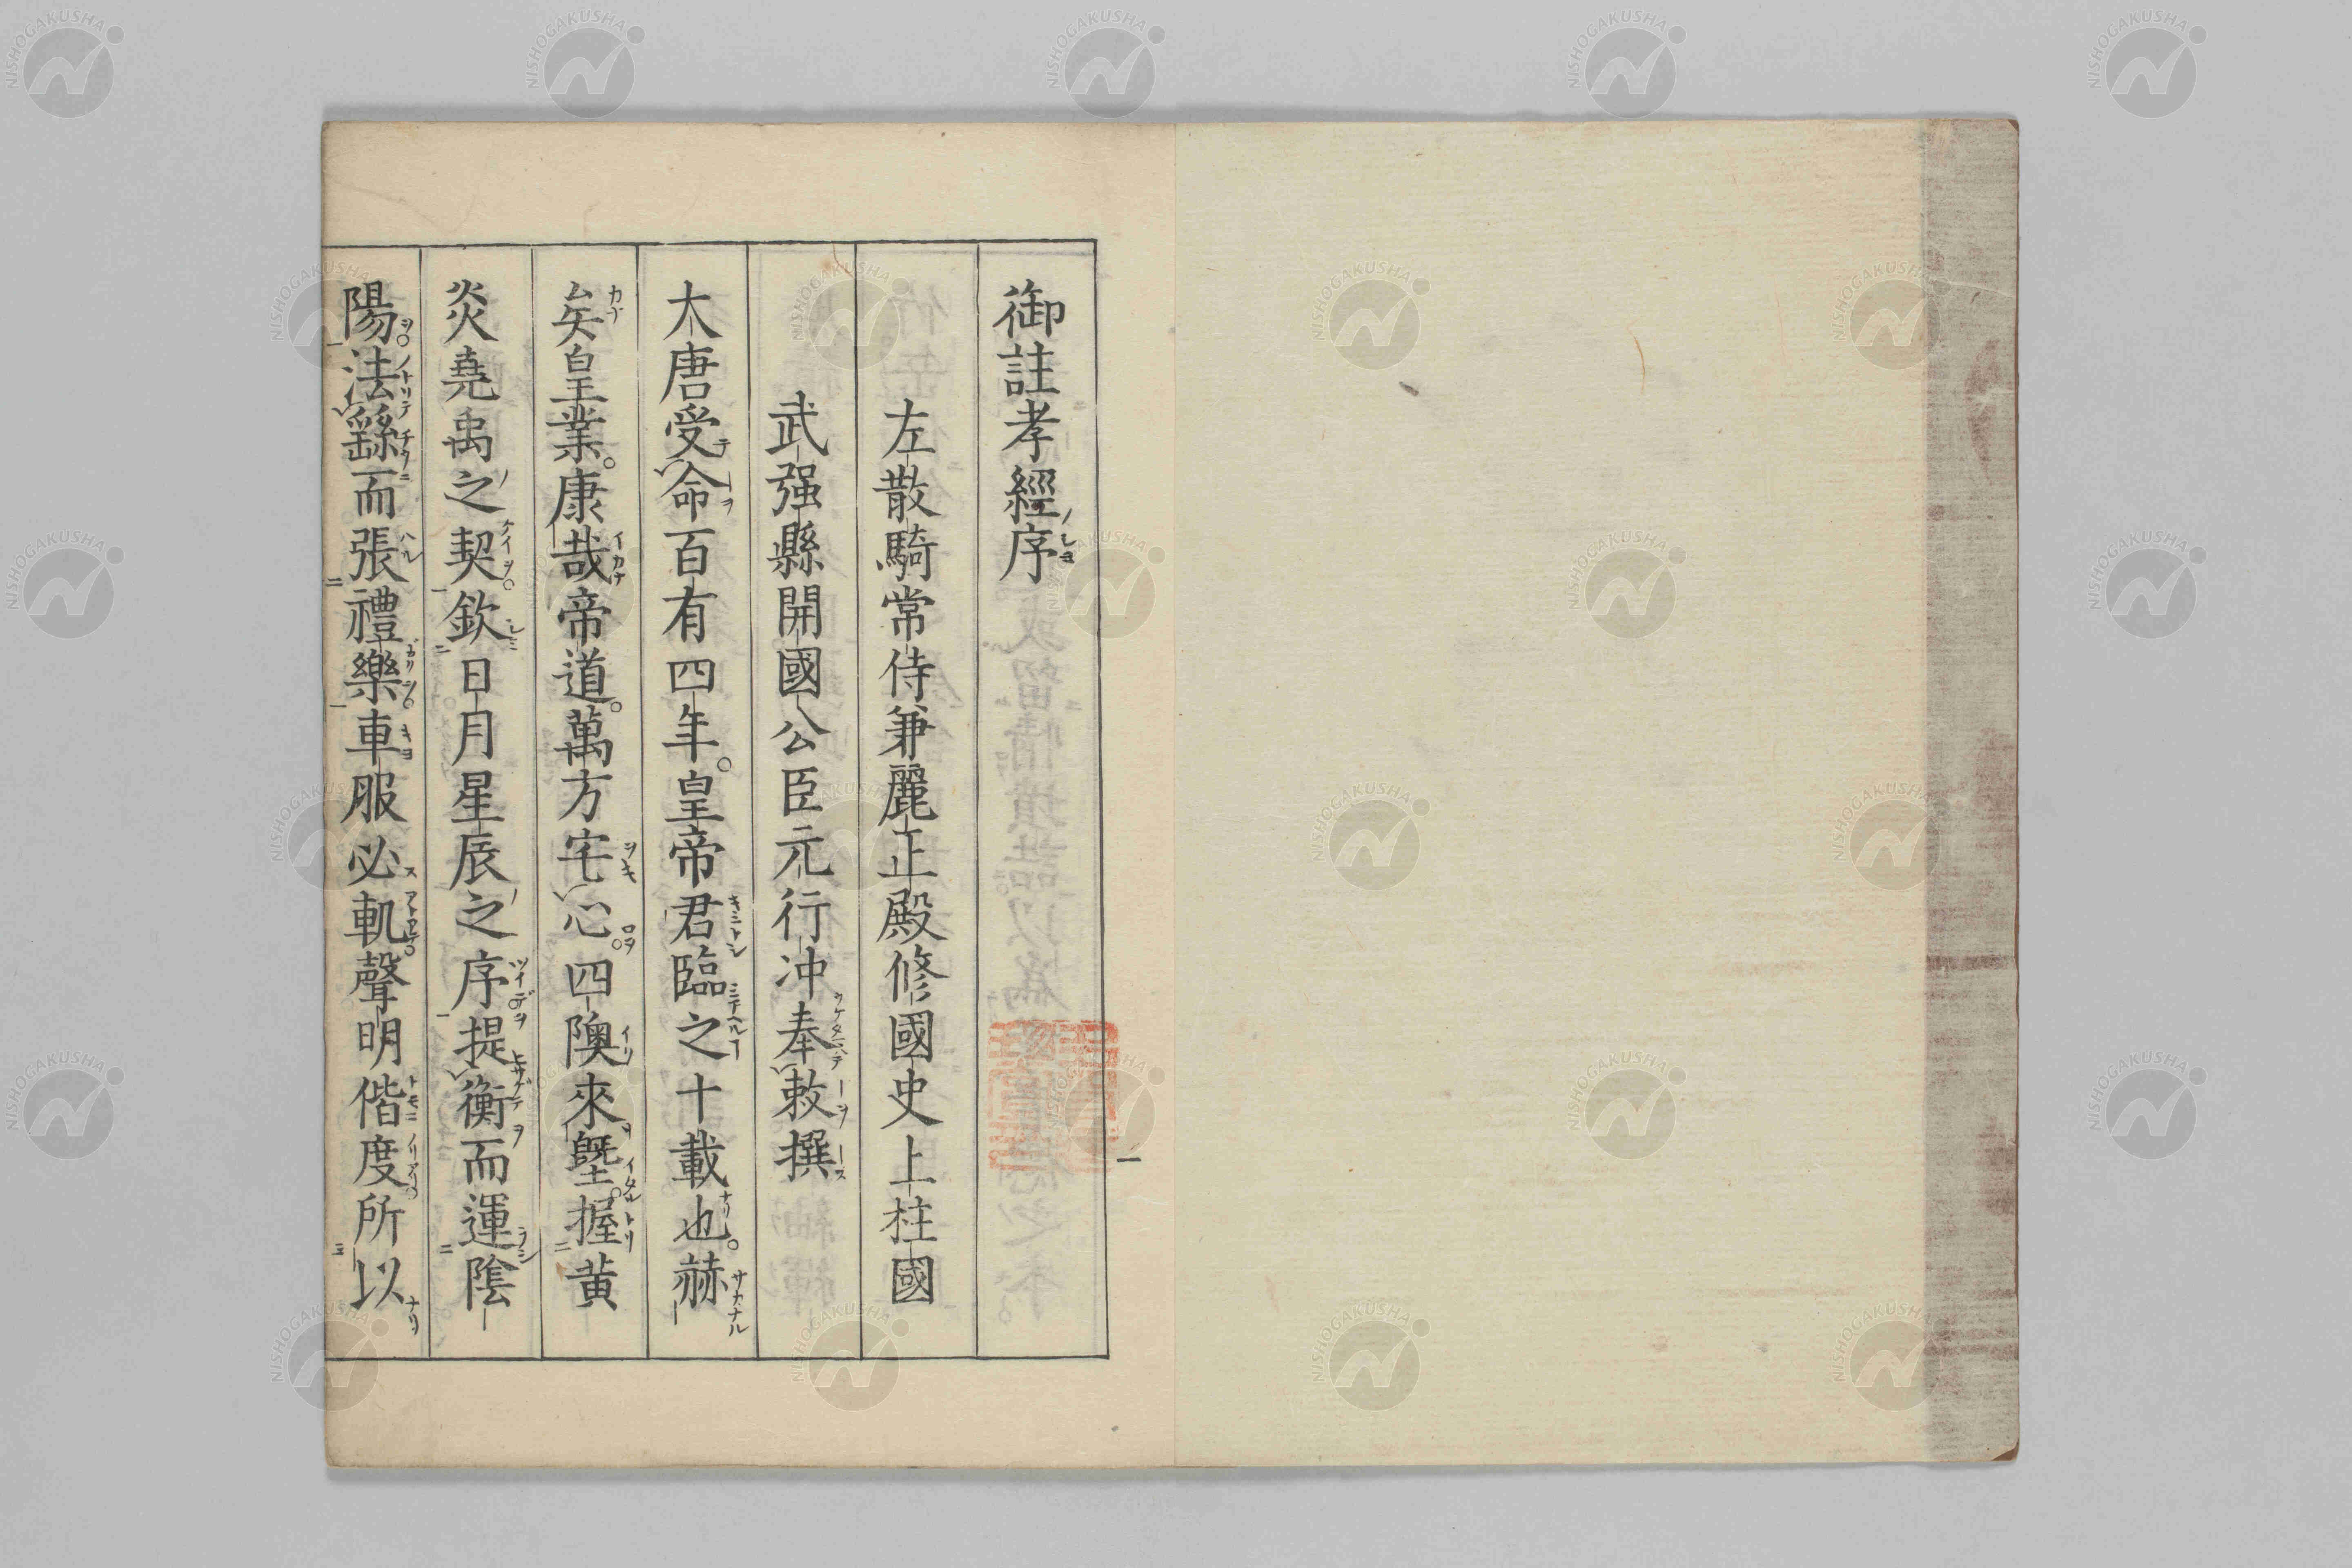 御註孝經序
左散騎常侍兼麗正殿修國史上柱國
武强縣開國公臣元行冲奉敕撰
大唐受命百有四年皇帝君臨之十載也赫
矣皇業康哉帝道萬方宅心四隩來曁握黄
炎堯禹之契欽日月星辰之序提衡而運陰
陽法繇而張禮樂車服必軌聲明偕度所以
一
NISHOGAKUSHA